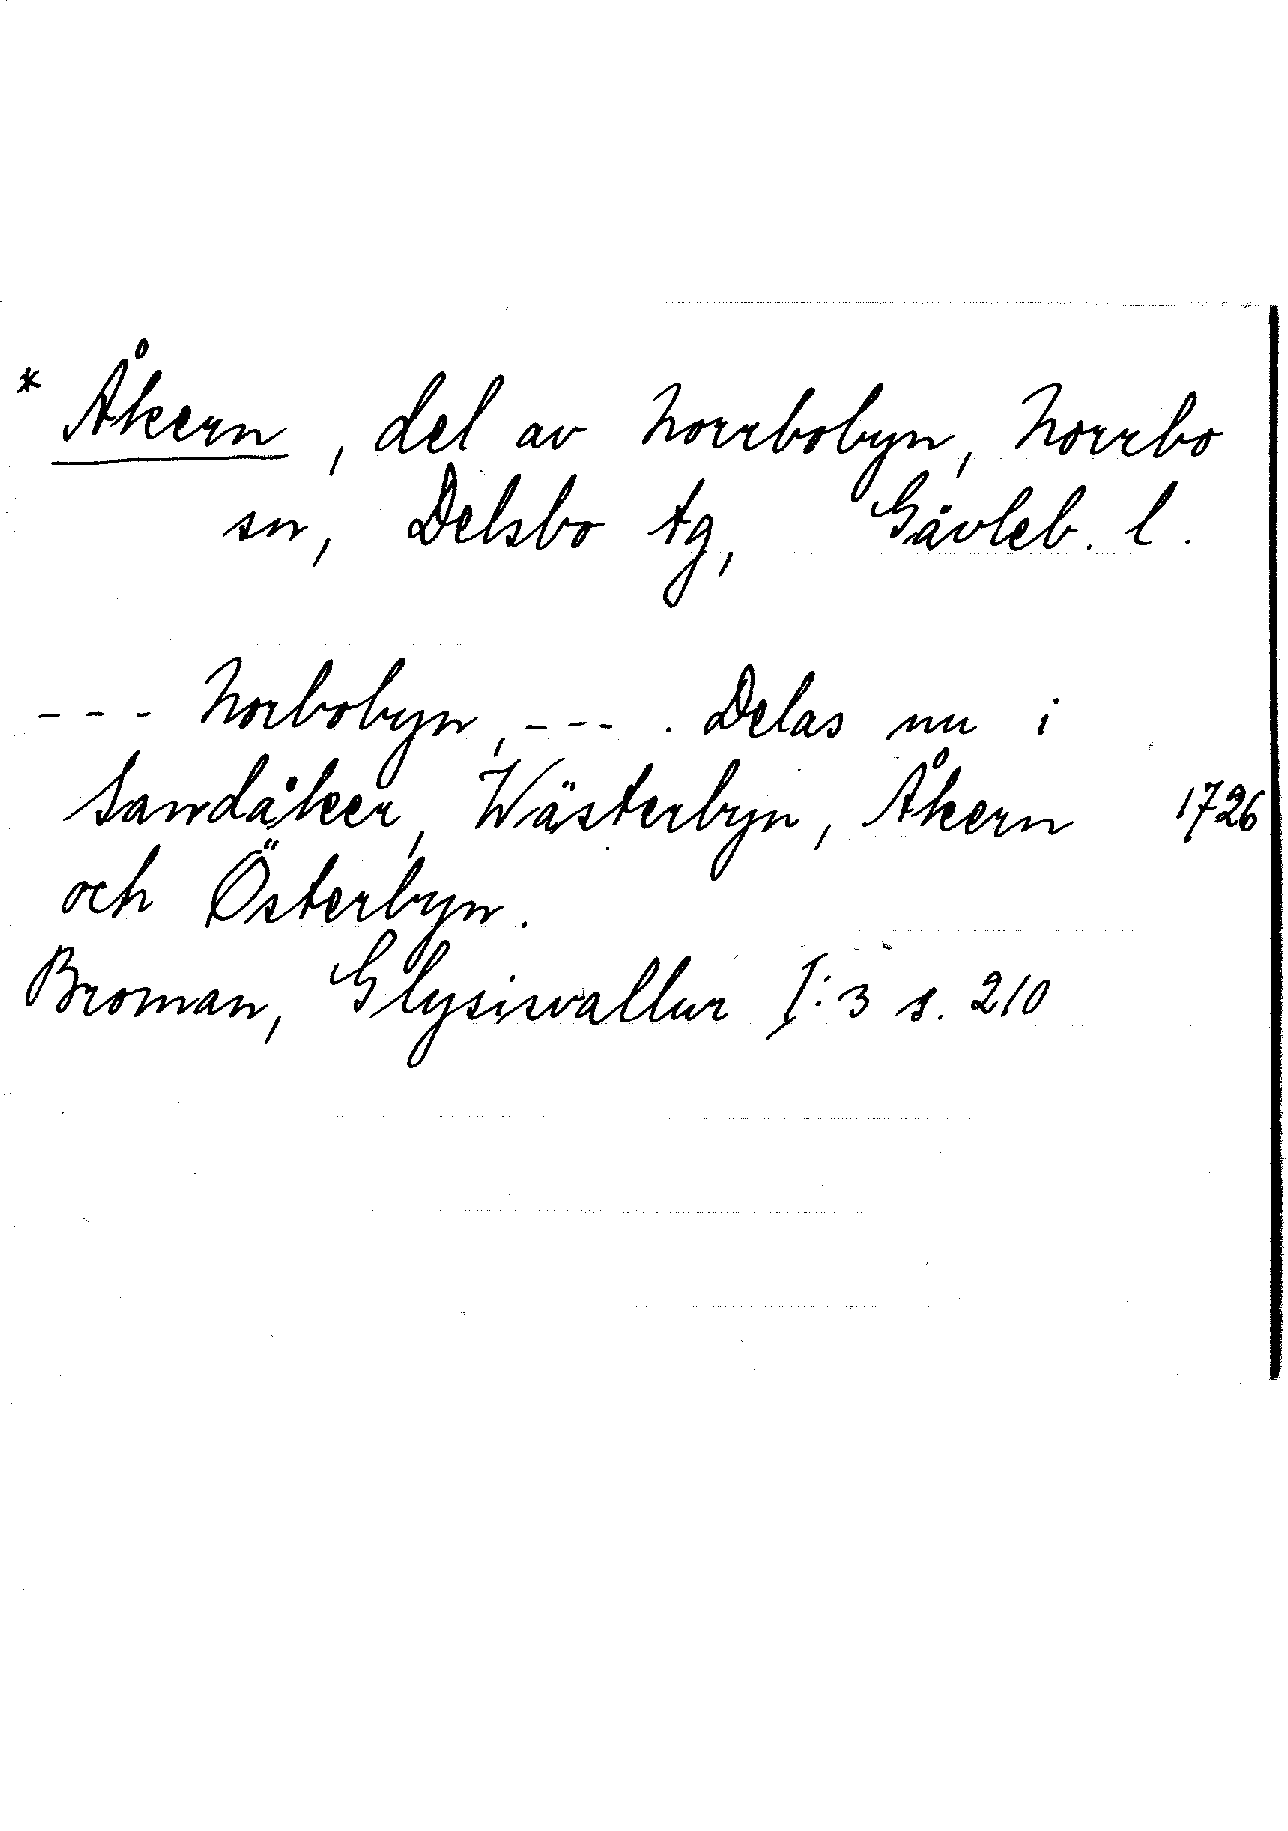 * Åkern, del av Norrbobyn, Norrbo
sn, Delsbo tg, Gävleb. l.
--- Norbobyn, ---. Delas nu i
Sandåker, Wästerbyn, Åkern 1726
och Österbyn.
Broman, Glysisvallur I:3 s. 210